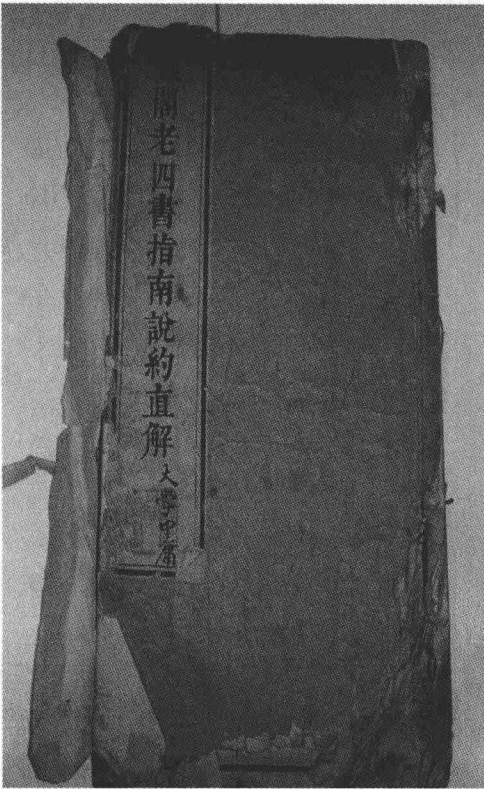 閣老四書指南說約直解大學中庸